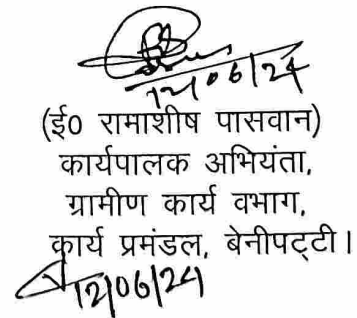 12/06/24
(ई0 रामाशीष पासवान)
कार्यपालक अभियंता,
ग्रामीण कार्य वभाग,
कार्य प्रमंडल, बेनीपट्टी।
12/06/24